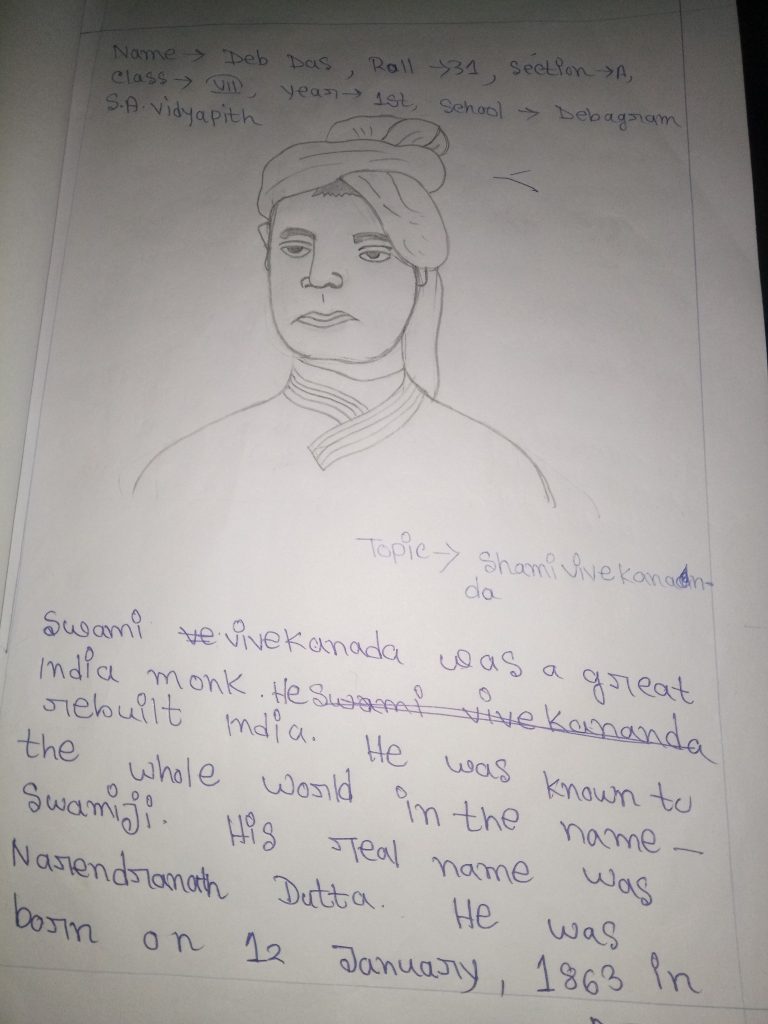 Name → Deb Das, Roll → 31, Section → A,
Class → VII, year → 1st, School → Debagram
S.A. Vidyapith
Topic → Shami vivekanan-
da
Swami ve vivekanada was a great
India monk. He Swami vivekananda
rebuilt India. He was known to
the whole world in the name –
Swamiji. His real name was
Narendranath Dutta. He was
born on 12 January, 1863 in